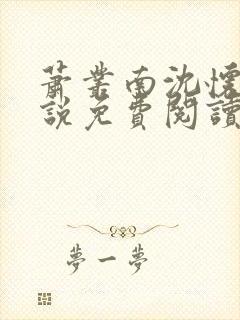 蕭業南沈懷
說免費閱讀
夢一夢